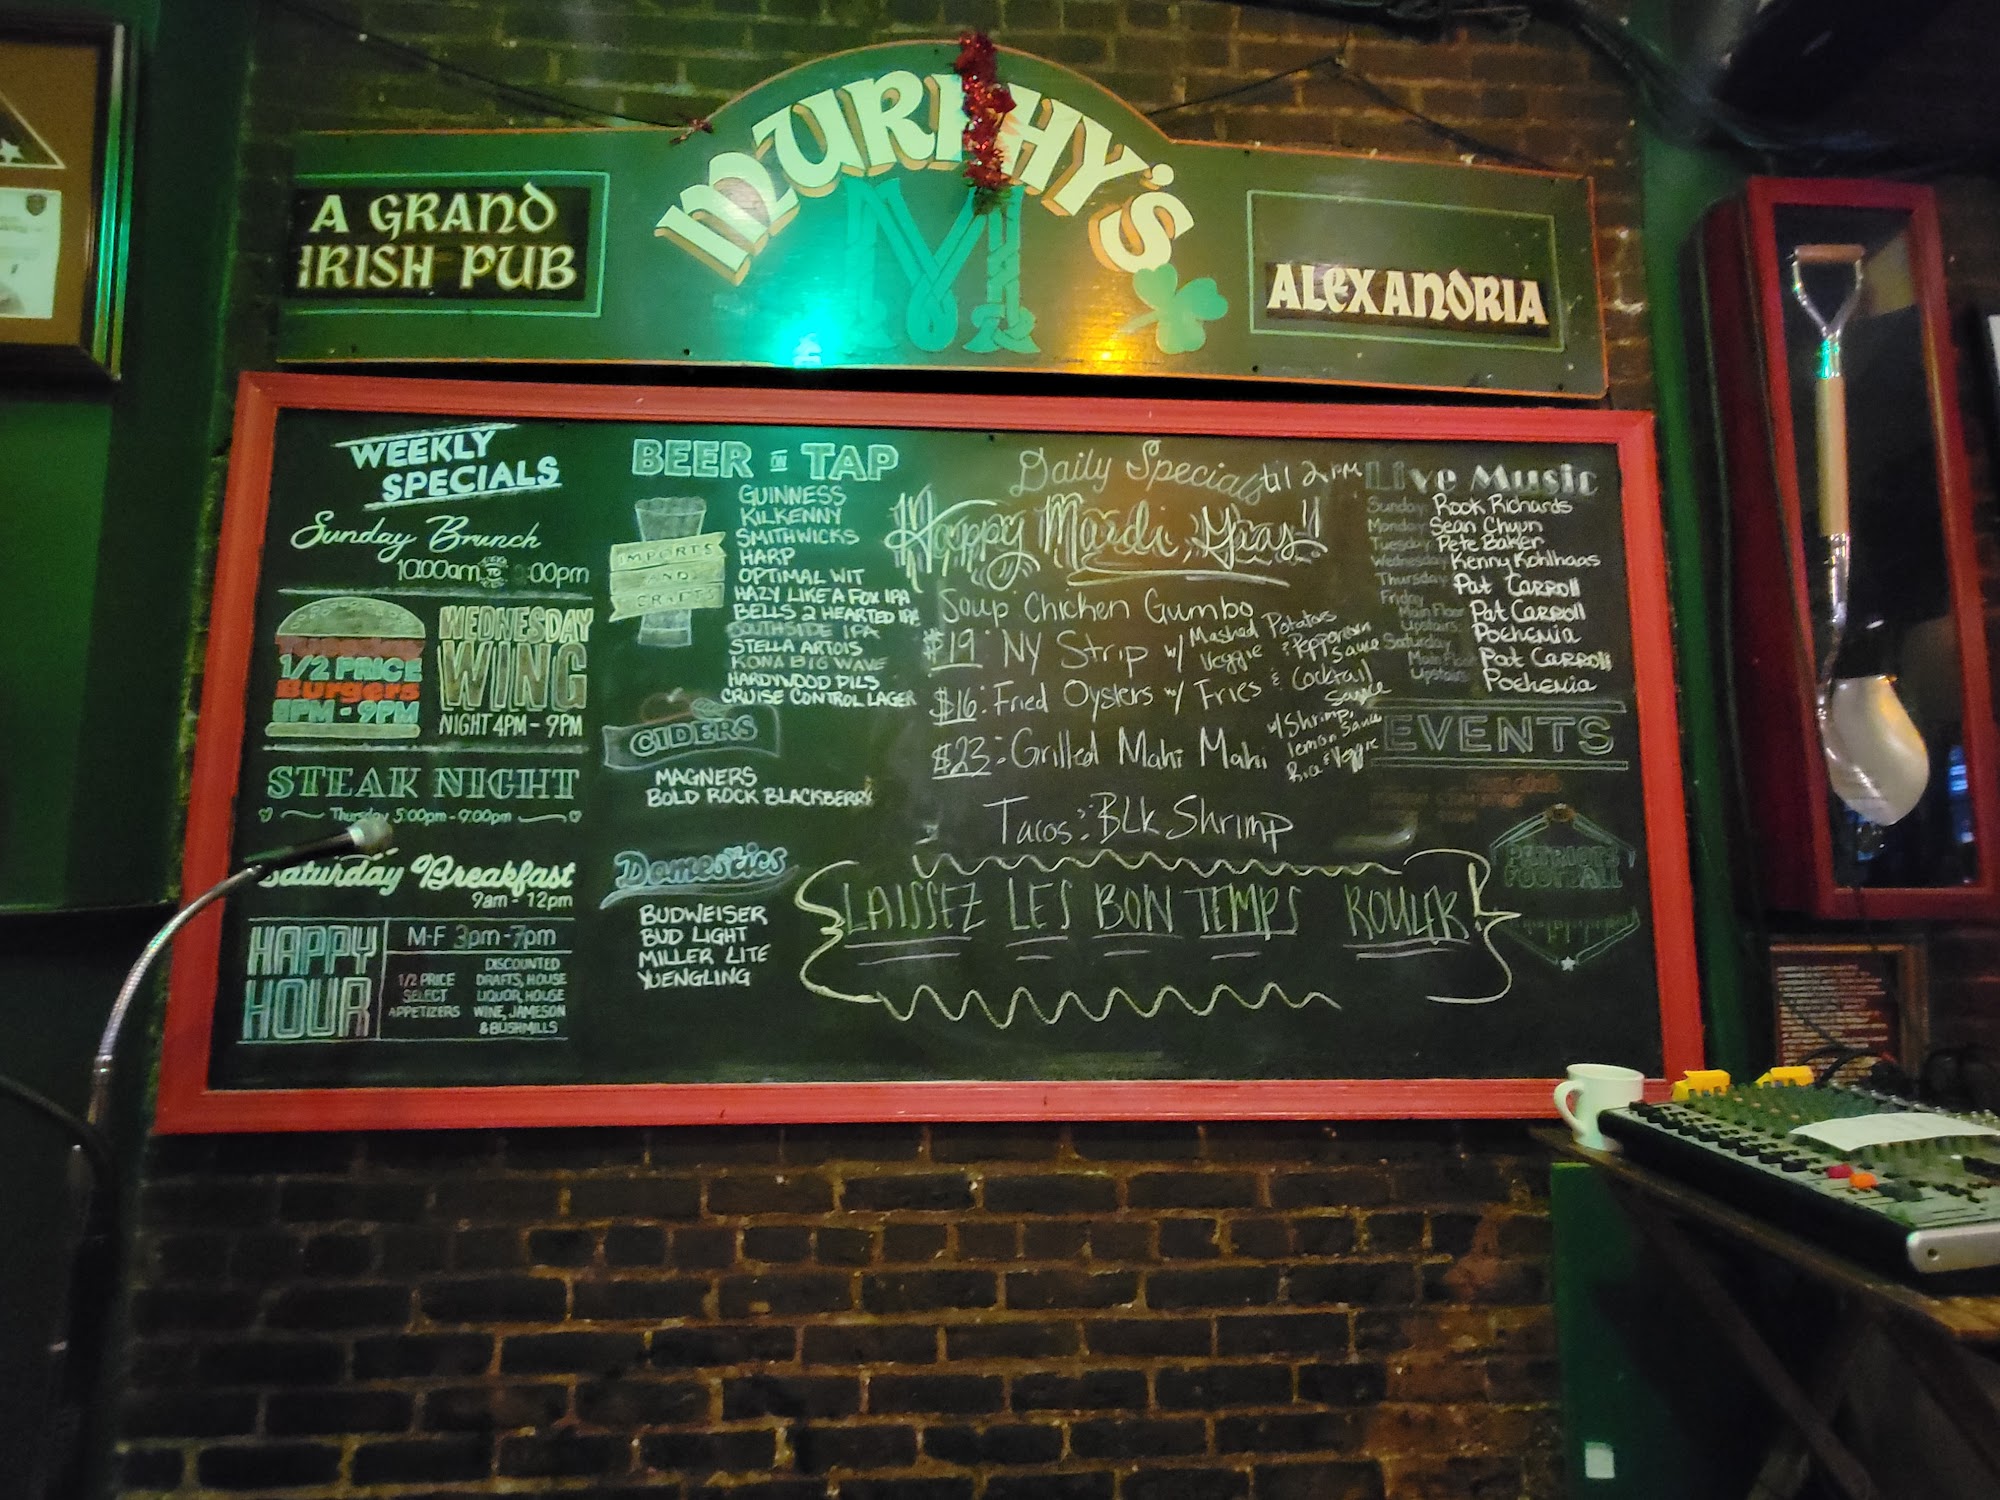 MURPHY'S
M
A GRAND
IRISH PUB
ALEXANDRIA
WEEKLY
SPECIALS
Sunday Brunch
10:00am TO :00pm
Tuesday
1/2 PRICE
Burgers
5PM - 9PM
WEDNESDAY
WING
NIGHT 4PM - 9PM
STEAK NIGHT
Thursday 5:00pm - 9:00pm
Saturday Breakfast
9am - 12pm
HAPPY
HOUR
M-F 3pm - 7pm
1/2 PRICE
SELECT
APPETIZERS
DISCOUNTED
DRAFTS, HOUSE
LIQUOR, HOUSE
WINE, JAMESON
& BUSHMILLS
BEER ON TAP
IMPORTS
AND
CRAFTS
GUINNESS
KILKENNY
SMITHWICKS
HARP
OPTIMAL WIT
HAZY LIKE A FOX IPA
BELLS 2 HEARTED IPA
SOUTHSIDE IPA
STELLA ARTOIS
KONA BIG WAVE
HARDYWOOD PILS
CRUISE CONTROL LAGER
CIDERS
MAGNERS
BOLD ROCK BLACKBERRY
Domestics
BUDWEISER
BUD LIGHT
MILLER LITE
YUENGLING
Daily Specials til 2PM
Happy Mardi Gras!
Soup Chicken Gumbo
$19: NY Strip w/ Mashed Potatoes
Veggie & Peppercorn
Sauce
$16: Fried Oysters w/ Fries & Cocktail
Sauce
$23: Grilled Mahi Mahi w/ Shrimp,
lemon Sauce
Rice & Veggie
Tacos: BLK Shrimp
LAISSEZ LES BON TEMPS ROULER!
Live Music
Sunday: Rook Richards
Monday Sean Chyun
Tuesday: Pete Baker
Wednesday: Kenny Kohlhaas
Thursday: Pat CARROll
Friday
Main Floor Pat CARROll
Upstairs: Pochemia
Saturday
Main Floor Pat CARROll
Upstairs: Pochemia
EVENTS
PATRIOTS
FOOTBALL